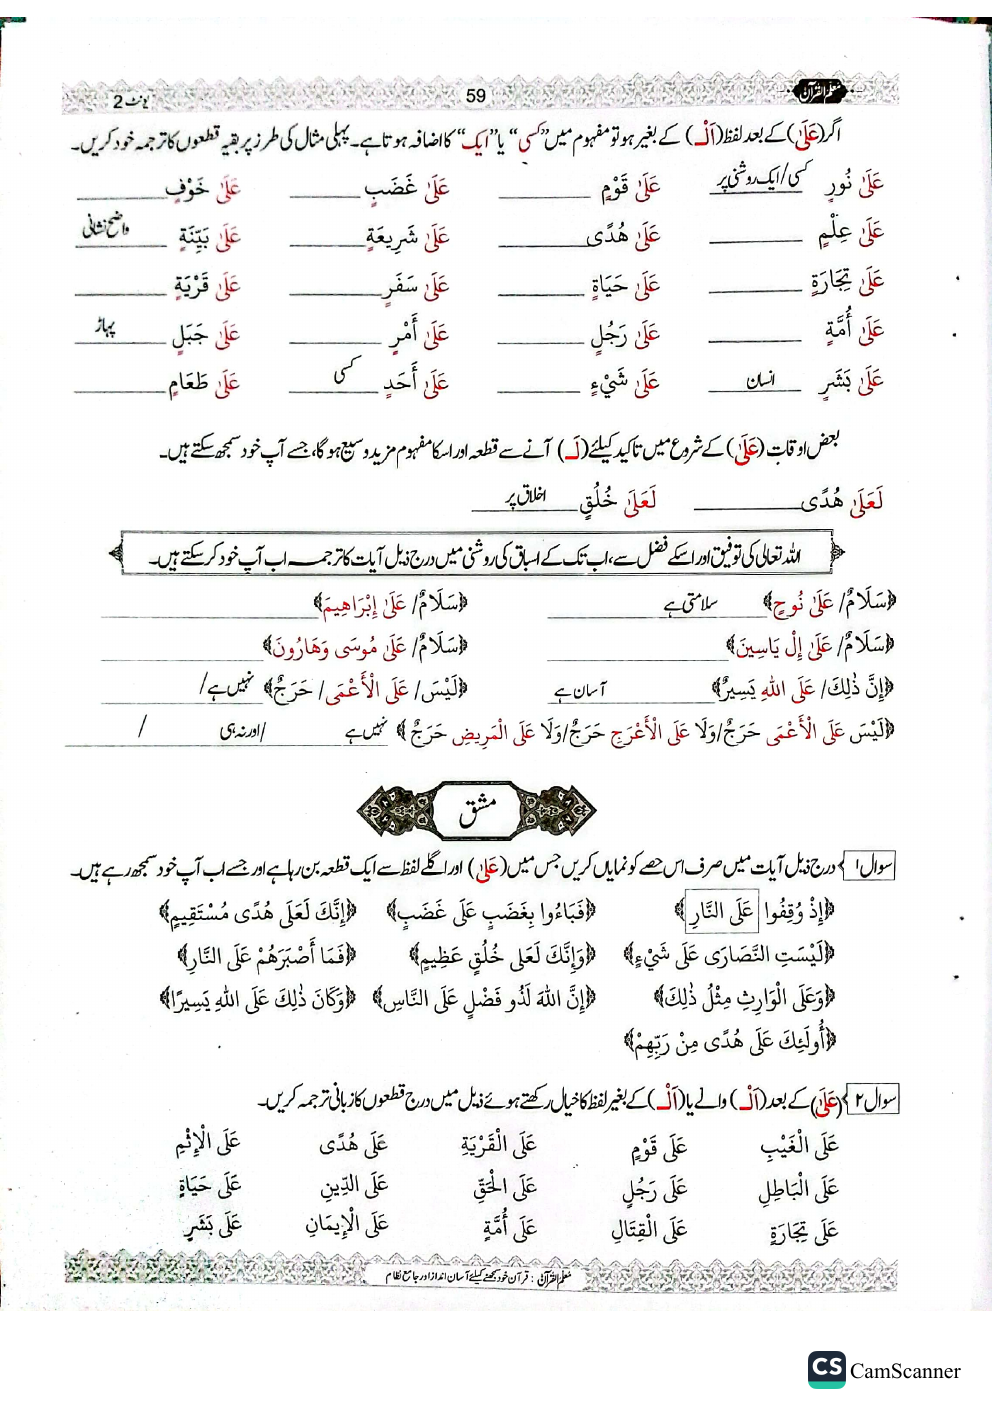 معلم القرآن 59 یونٹ 2
اگر (عَلَىٰ) کے بعد لفظ (اَلْـ) کے بغیر ہو تو مفہوم میں ”کسی“ یا ”ایک“ کا اضافہ ہوتا ہے۔ پہلی مثال کی طرز پر بقیہ قطعوں کا ترجمہ خود کریں۔
عَلَىٰ نُورٍ کسی/ایک روشنی پر عَلَىٰ قَوْمٍ ________ عَلَىٰ غَضَبٍ ________ عَلَىٰ خَوْفٍ ________
عَلَىٰ عِلْمٍ ________ عَلَىٰ هُدًى ________ عَلَىٰ شَرِيعَةٍ ________ عَلَىٰ بَيِّنَةٍ واضح نشانی
عَلَىٰ تِجَارَةٍ ________ عَلَىٰ حَيَاةٍ ________ عَلَىٰ سَفَرٍ ________ عَلَىٰ قَرْيَةٍ ________
عَلَىٰ أُمَّةٍ ________ عَلَىٰ رَجُلٍ ________ عَلَىٰ أَمْرٍ ________ عَلَىٰ جَبَلٍ پہاڑ
عَلَىٰ بَشَرٍ انسان عَلَىٰ شَيْءٍ ________ عَلَىٰ أَحَدٍ کسی عَلَىٰ طَعَامٍ ________
بعض اوقات (عَلَىٰ) کے شروع میں تاکید کیلئے (لَـ) آنے سے قطعہ اور اسکا مفہوم مزید وسیع ہوگا، جسے آپ خود سمجھ سکتے ہیں۔
لَعَلَىٰ هُدًى ________ لَعَلَىٰ خُلُقٍ اخلاق پر
اللہ تعالیٰ کی توفیق اور اسکے فضل سے، اب تک کے اسباق کی روشنی میں درج ذیل آیات کا ترجمہ اب آپ خود کر سکتے ہیں۔
﴿سَلَامٌ/ عَلَىٰ نُوحٍ﴾ سلامتی ہے ________ ﴿سَلَامٌ/ عَلَىٰ إِبْرَاهِيمَ﴾ ________
﴿سَلَامٌ/ عَلَىٰ إِلْ يَاسِينَ﴾ ________ ﴿سَلَامٌ/ عَلَىٰ مُوسَى وَهَارُونَ﴾ ________
﴿إِنَّ ذٰلِكَ/ عَلَى اللهِ يَسِيرٌ﴾ آسان ہے ________ ﴿لَيْسَ/ عَلَى الْأَعْمَى/ حَرَجٌ﴾ نہیں ہے/ ________
﴿لَيْسَ عَلَى الْأَعْمَى حَرَجٌ/وَلَا عَلَى الْأَعْرَجِ حَرَجٌ/وَلَا عَلَى الْمَرِيضِ حَرَجٌ﴾ نہیں ہے /اور نہ ہی /
مشق
سوال ۱ درج ذیل آیات میں صرف اس حصے کو نمایاں کریں جس میں (عَلَىٰ) اور اگلے لفظ سے ایک قطعہ بن رہا ہے اور جسے اب آپ خود سمجھ رہے ہیں۔
﴿إِذْ وُقِفُوا عَلَى النَّارِ﴾ ﴿فَبَاءُوا بِغَضَبٍ عَلَى غَضَبٍ﴾ ﴿إِنَّكَ لَعَلَى هُدًى مُسْتَقِيمٍ﴾
﴿لَيْسَتِ النَّصَارَى عَلَى شَيْءٍ﴾ ﴿وَإِنَّكَ لَعَلى خُلُقٍ عَظِيمٍ﴾ ﴿فَمَا أَصْبَرَهُمْ عَلَى النَّارِ﴾
﴿وَعَلَى الْوَارِثِ مِثْلُ ذٰلِكَ﴾ ﴿إِنَّ اللهَ لَذُو فَضْلٍ عَلَى النَّاسِ﴾ ﴿وَكَانَ ذٰلِكَ عَلَى اللهِ يَسِيرًا﴾
﴿أُولَئِكَ عَلَى هُدًى مِنْ رَبِّهِمْ﴾
سوال ۲ (عَلَىٰ) کے بعد (اَلْـ) والے یا (اَلْـ) کے بغیر لفظ کا خیال رکھتے ہوئے ذیل میں درج قطعوں کا زبانی ترجمہ کریں۔
عَلَى الْغَيْبِ عَلَى قَوْمٍ عَلَى الْقَرْيَةِ عَلَى هُدًى عَلَى الْإِثْمِ
عَلَى الْبَاطِلِ عَلَى رَجُلٍ عَلَى الْحَقِّ عَلَى الدِّينِ عَلَى حَيَاةٍ
عَلَى تِجَارَةٍ عَلَى الْقِتَالِ عَلَى أُمَّةٍ عَلَى الْإِيمَانِ عَلَى بَشَرٍ
معلم القرآن : قرآن خود سمجھنے کیلئے آسان انداز اور جامع نظام
CS CamScanner